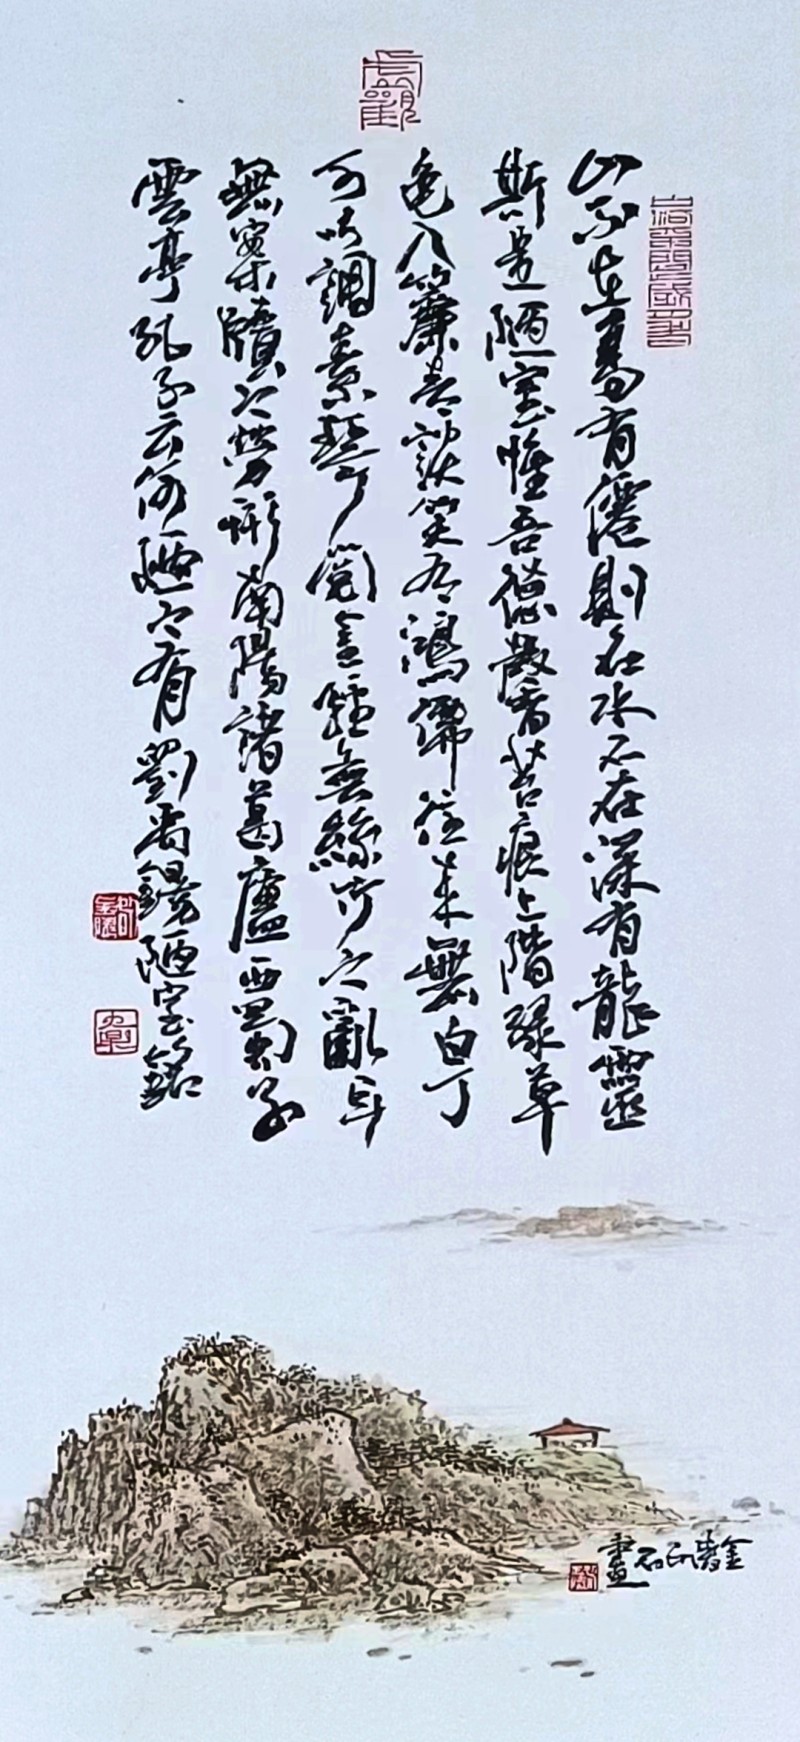 山不在高有僊則名水不在深有龍靈
斯是陋室惟吾德馨苔痕上階緑草
色入簾青談笑有鴻儒往來無白丁
可以調素琴閱金經無絲竹之亂耳
無案牘之勞形南陽諸葛廬西蜀子
雲亭孔子云何陋之有劉禹錫陋室銘